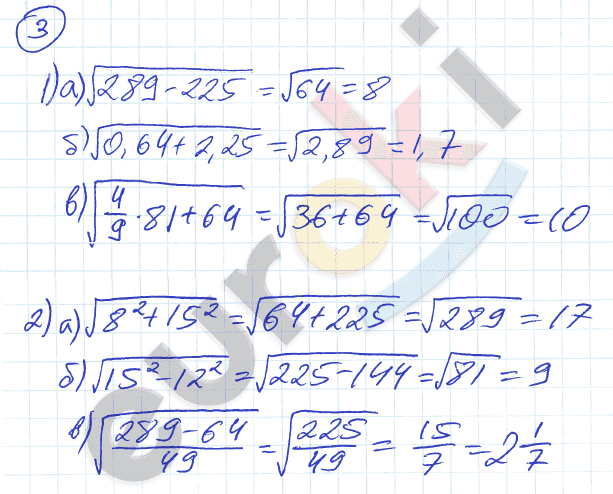 3
1) а) √(289-225) = √64 = 8
б) √(0,64+2,25) = √2,89 = 1,7
в) √(4/9·81+64) = √(36+64) = √100 = 10
2) а) √(8²+15²) = √(64+225) = √289 = 17
б) √(15²-12²) = √(225-144) = √81 = 9
в) √((289-64)/49) = √(225/49) = 15/7 = 2 1/7
euroki